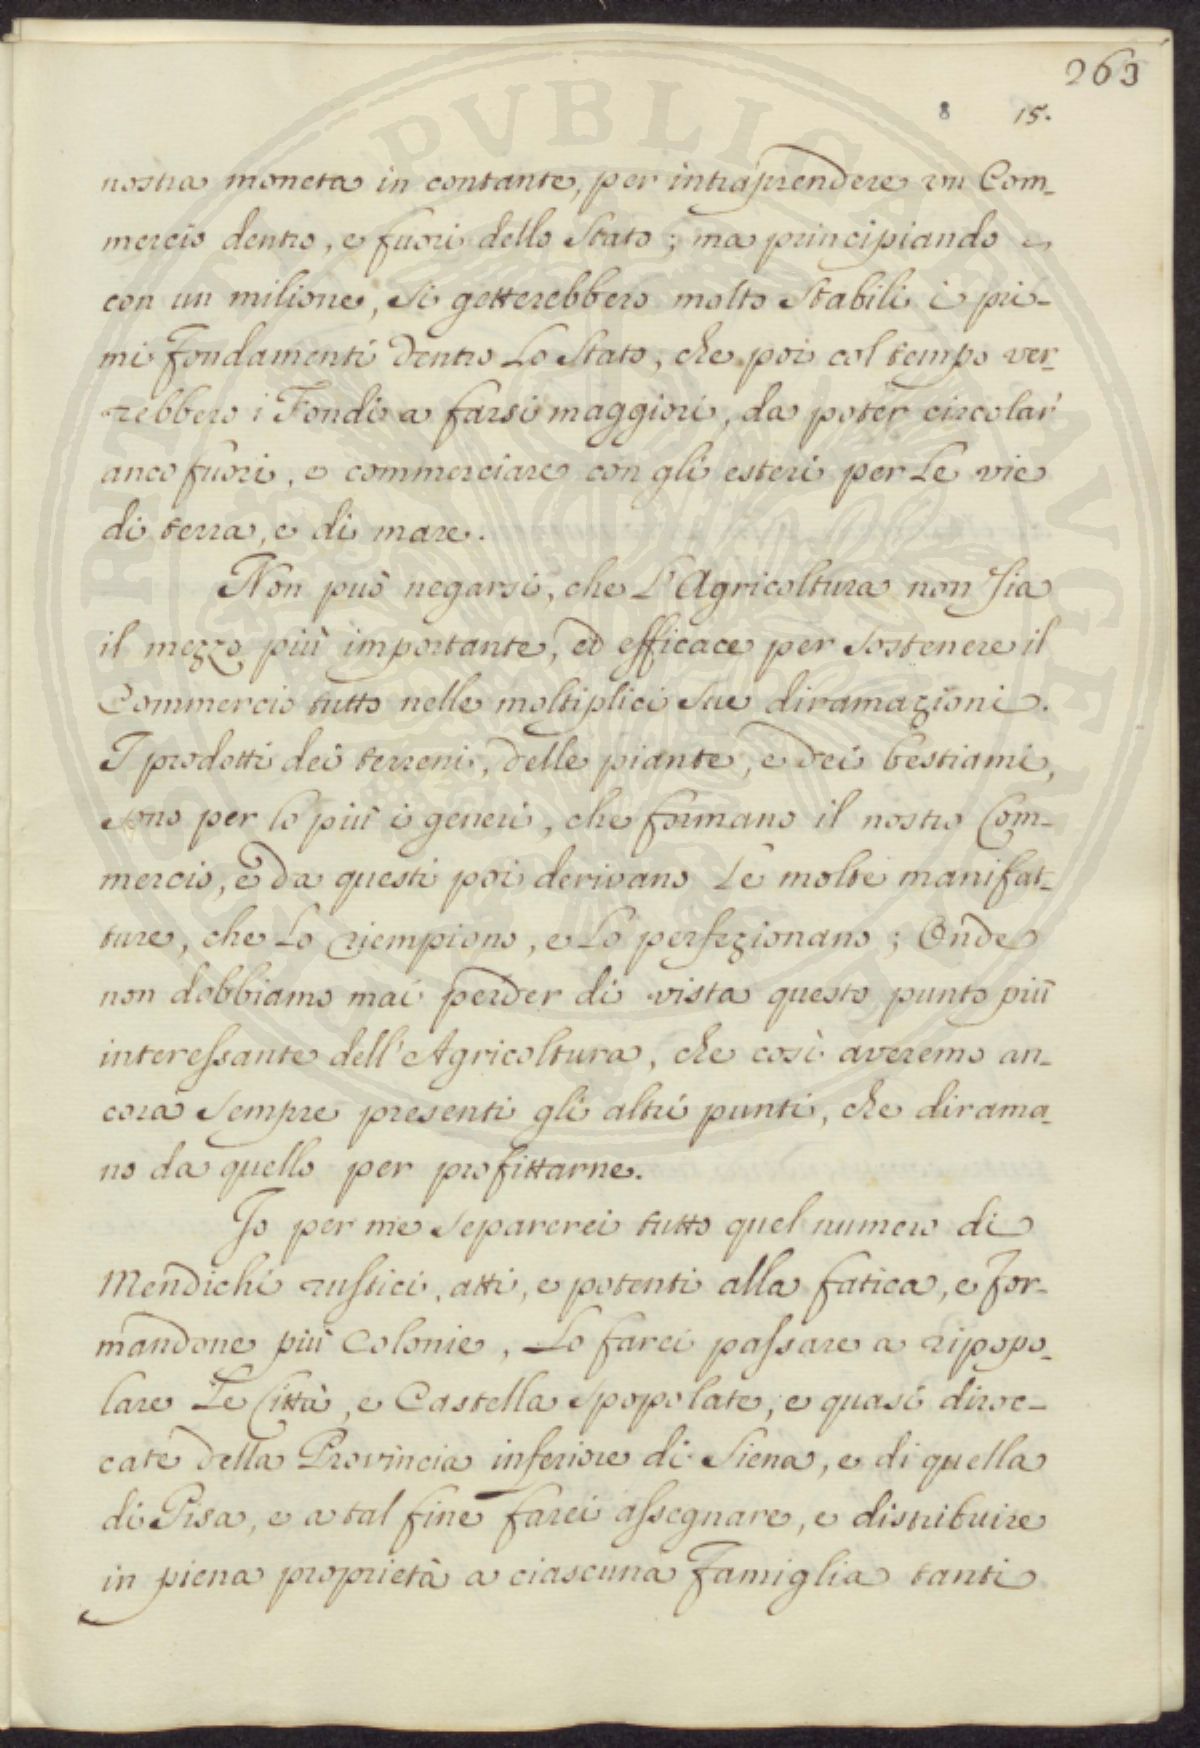 263
8 15.
nostra moneta in contante, per intraprendere un Com-
mercio dentro, e fuori dello Stato; ma principiando
con un milione, si getterebbero molto stabili i pri-
mi fondamenti dentro lo Stato, che poi col tempo ver-
rebbero i Fondi a farsi maggiori, da poter circolar
anco fuori, e commerciare con gli esteri per le vie
di terra, e di mare.
Non può negarsi, che l'Agricoltura non sia
il mezzo più importante, ed efficace per sostenere il
Commercio tutto nelle moltiplici sue diramazioni.
I prodotti dei terreni, delle piante, e dei bestiami,
sono per lo più i generi, che formano il nostro Com-
mercio, e da questi poi derivano le molte manifat-
ture, che lo riempiono, e lo perfezionano; Onde
non dobbiamo mai perder di vista questo punto più
interessante dell'Agricoltura, che così averemo an-
cora sempre presenti gli altri punti, che dirama-
no da quello per profittarne.
Io per me separerei tutto quel numero di
Mendichi rustici, atti, e potenti alla fatica, e for-
mandone più Colonie, lo farei passare a ripopo-
lare le Città, e Castella spopolate, e quasi diroc-
cate della Provincia inferiore di Siena, e di quella
di Pisa, e a tal fine farei assegnare, e distribuire
in piena proprietà a ciascuna Famiglia tanti
PUBLICAE